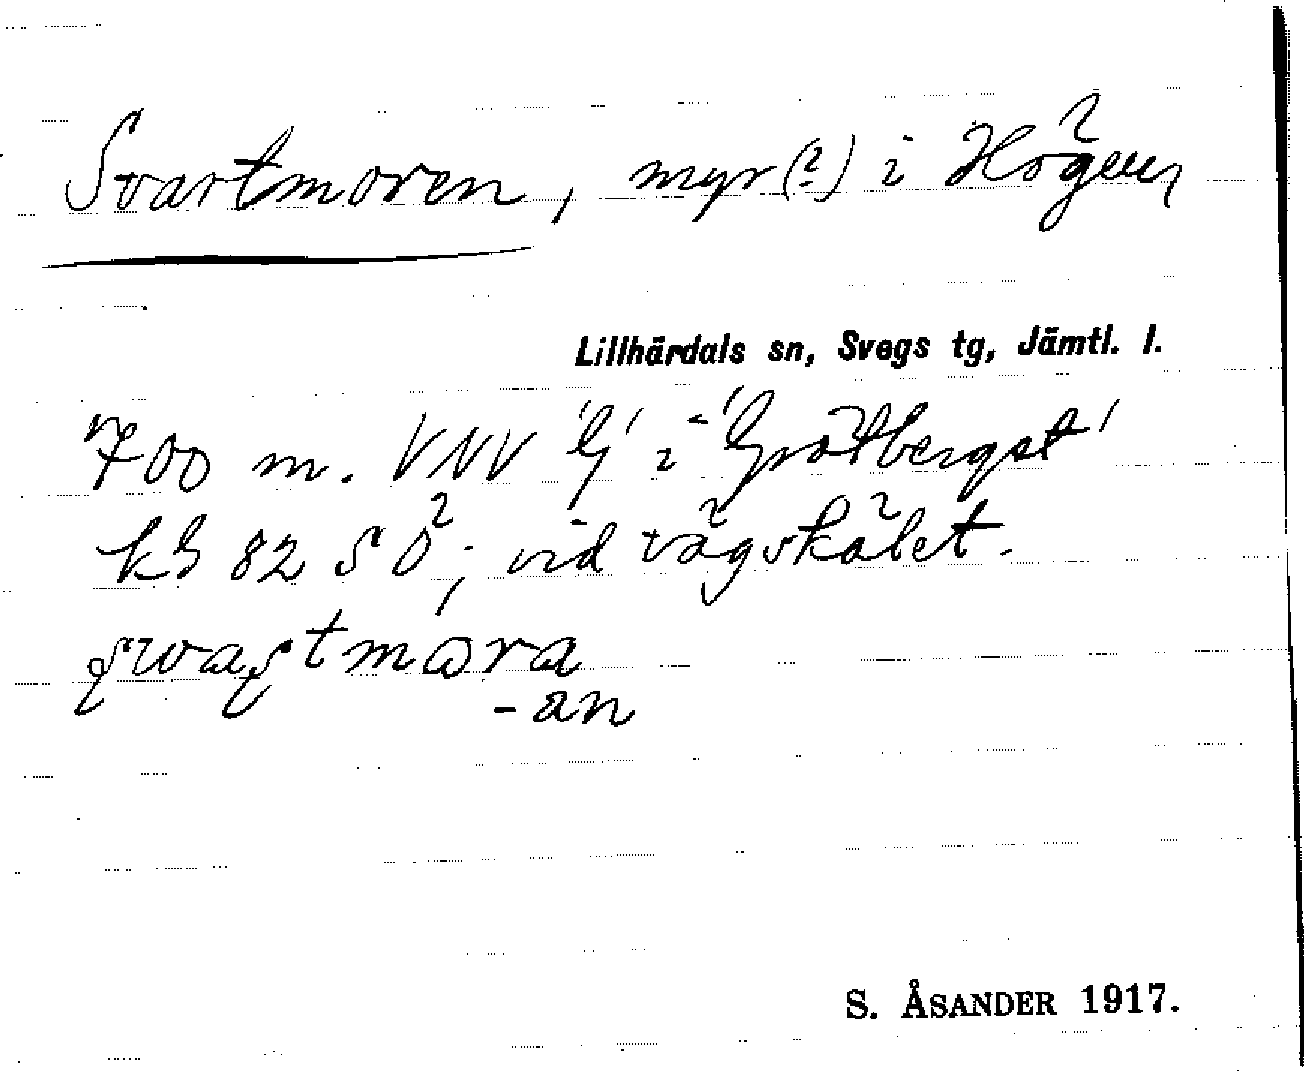 Svartmoren, myr(?) i Högen,
Lillhärdals sn, Svegs tg, Jämtl. l.
700 m. VNV 'G' i 'Grötbergst'
kb 82 SÖ; vid vägskälet.
swaʂtmɷra
-an
S. ÅSANDER 1917.